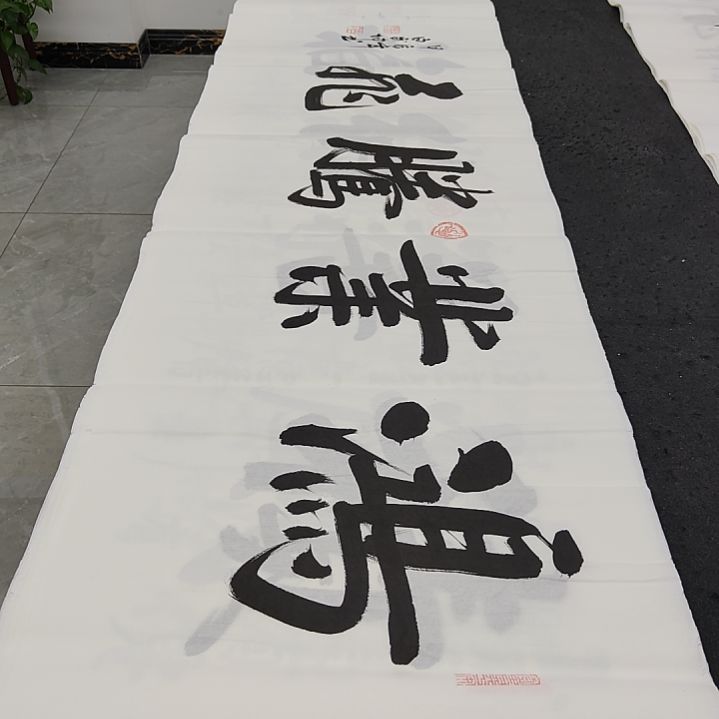 鴻業騰飛